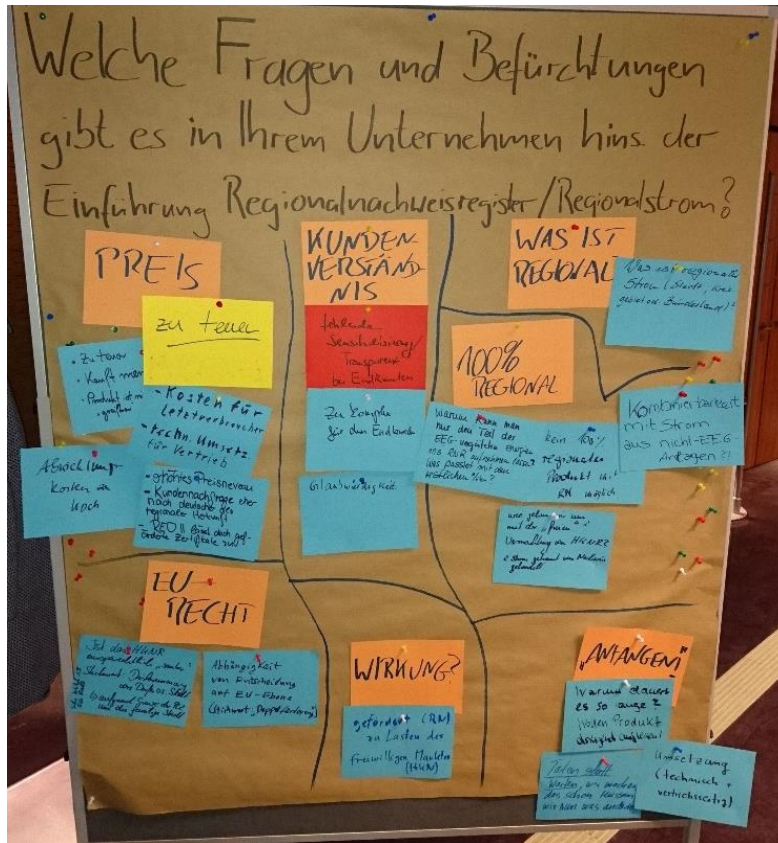 Welche Fragen und Befürchtungen
gibt es in Ihrem Unternehmen hins. der
Einführung Regionalnachweisregister/Regionalstrom?
PREIS
zu teuer
• Zu teuer
• Kauft
• Produkt ist
- Kosten für
Letztverbraucher
- techn. Umsetz
für Vertrieb
Abwicklungs-
kosten zu
hoch
- Kundennachfrage eher
nach deutscher als
regionaler Herkunft
- RED II lässt doch gef-
örderte Zertifikate zu?
KUNDEN-
VERSTÄND-
NIS
fehlende
Sensibilisierung/
Transparenz
bei Endkunden
Zu komplex
für den Endkunde
Glaubwürdigkeit
WAS IST
REGIONAL
Was ist regionaler
Strom (Stadt,
Bundesland)?
100%
REGIONAL
Warum kann man
nur den Teil der
EEG-vergüteten Energie
Was passiert mit den
restlichen %?
kein 100%
regionales
Produkt
RN möglich
Kombinierbarkeit
mit Strom
aus nicht-EEG-
Anlagen?!
mit der "freien"
Vermarktung
EU
RECHT
Ist das HKNR
Abhängigkeit
von Entscheidung
auf EU-Ebene
(Stichwort "Doppelförderung")
WIRKUNG?
gefördert (RN)
zu Lasten des
freiwilligen Marktes
(HKN)
"ANFANGEN"
Warum dauert
es so lange?
Taten statt
Warten, wir machen
das schon
Umsetzung
(technisch +
vertriebseitig)